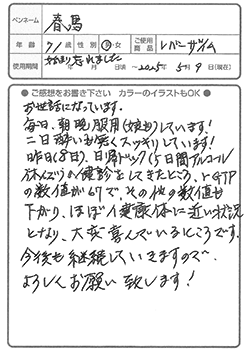 ペンネーム 春馬
年齢 71才 性別 男・女 ご使用商品 レバーザイム
使用期間 始め忘れました 年 月 日頃 ～ 2025年 5月 9日(現在)
● ご感想をお書き下さい カラーのイラストもOK ●
お世話になっています。
毎日、朝晩服用(娘も)しています!
二日酔いも無くスッキリしています!
昨日(8日)、日帰ドック(5日間アルコール
休んで)の健診をしてきたところ、γ-GTP
の数値が67で、その他の数値も
下がり、ほぼ健康体に近い状況
となり、大変喜んでいるところです。
今後も継続していきますので、
よろしくお願い致します!